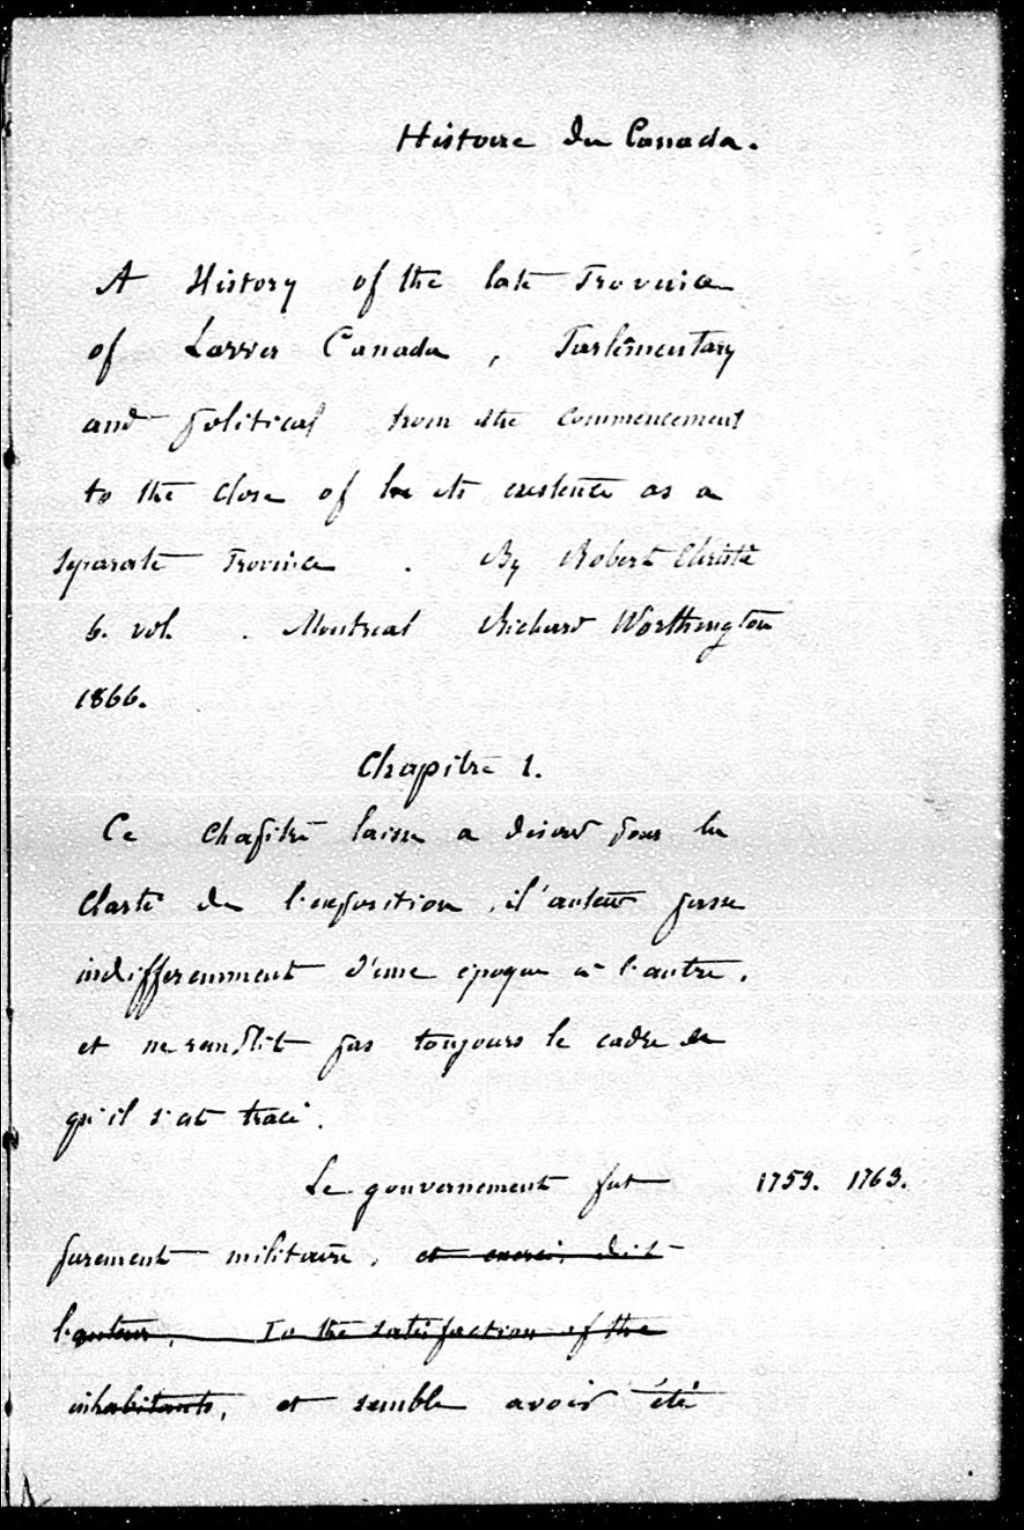 Histoire du Canada.
A History of the late Province
of Lower Canada, Parlementary
and political from the commencement
to the close of its existence as a
separate Province. By Robert Christie
6. vol. Montreal Richard Worthington
1866.
Chapitre 1.
Ce chapitre laisse a desirer pour la
clarté de l'exposition, l'auteur passe
indifferemment d'une époque à l'autre,
et ne remplit pas toujours le cadre
qu'il s'est tracé.
Le gouvernement fut 1759. 1763.
purement militaire, et exercé, dit
l'auteur, To the satisfaction of the
inhabitants, et semble avoir été